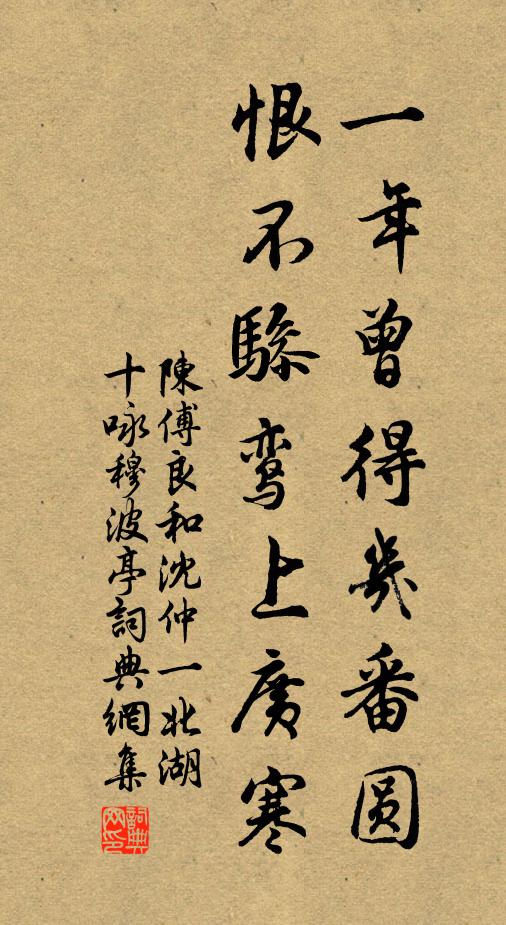 一年曾得幾番圓
恨不驂鸾上廣寒
陳傅良和沈仲一北湖
十咏穆波亭詞典網集
詞典
网印